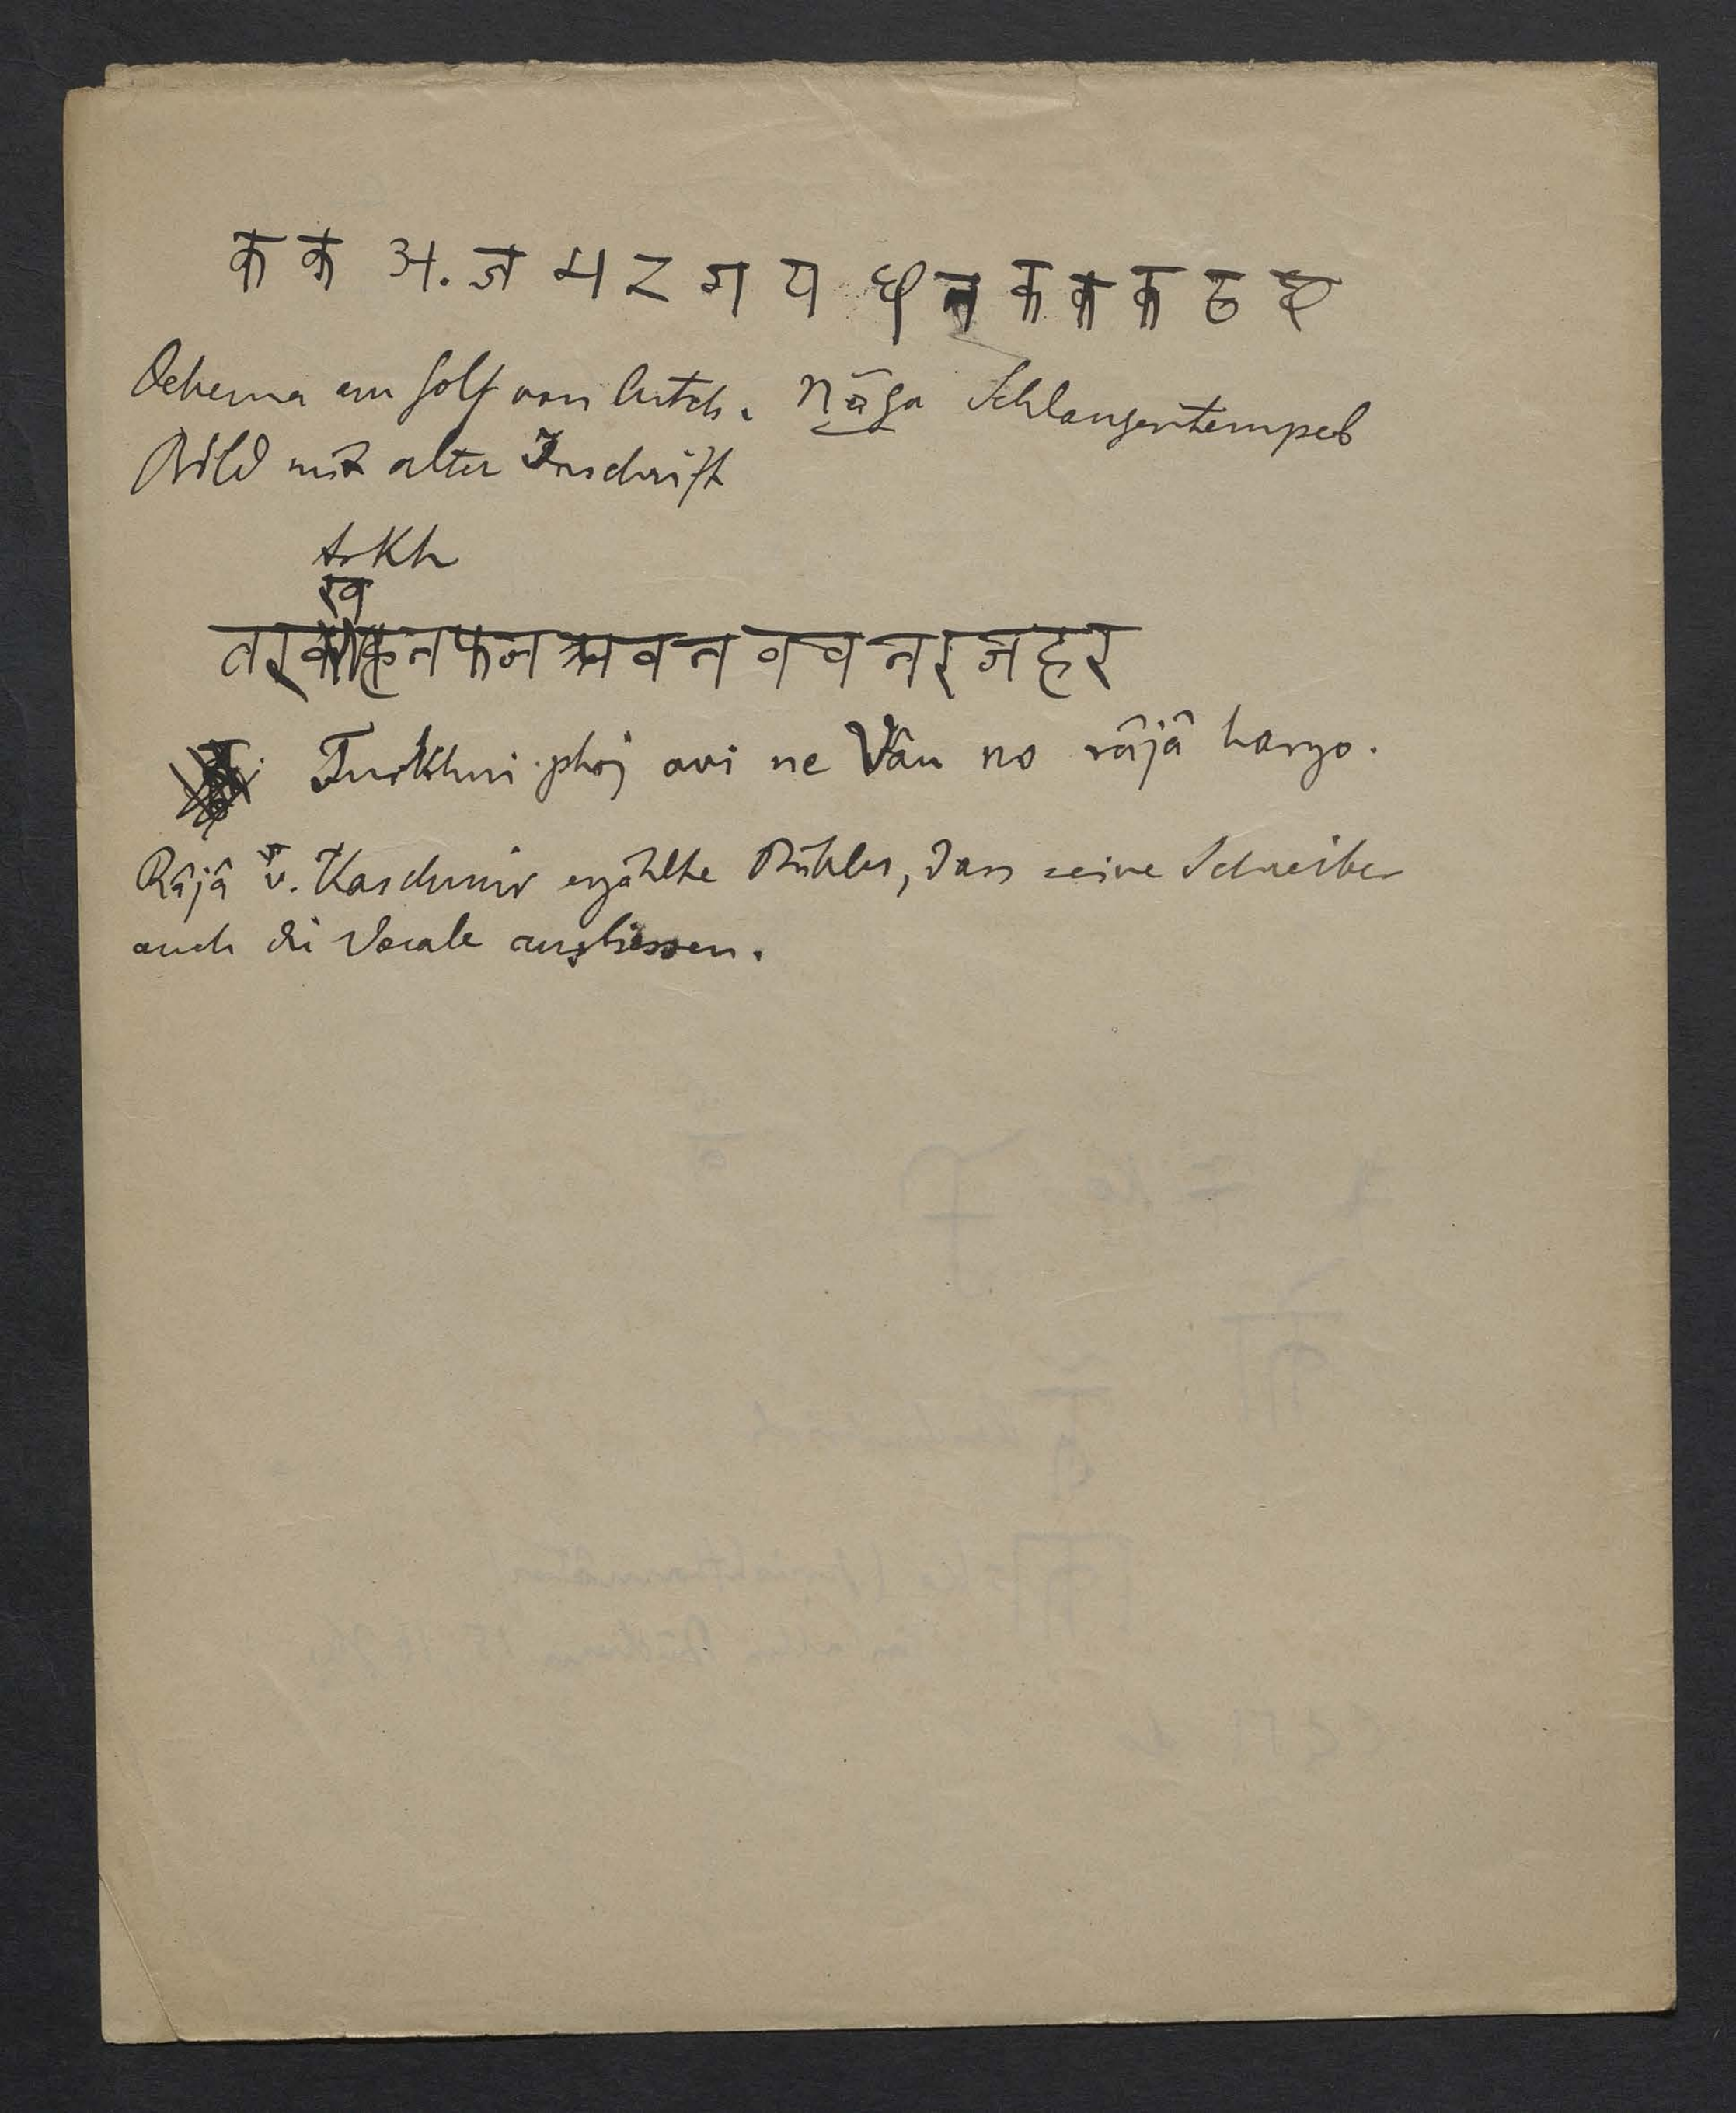 क क अ. ज म ट ग य छ न क क क ठ
am Golf von Cutch. Nāga Schlangentempel
Bild mit alter Inschrift
trkh
ख
तरक नफज अवन वव नरजहर
Turkhni phoj avi ne Vâu no râjâ haryo.
Râjâ v. Kaschmir erzählte Bühler, dass seine Schreiber
auch die Vocale ausliessen.